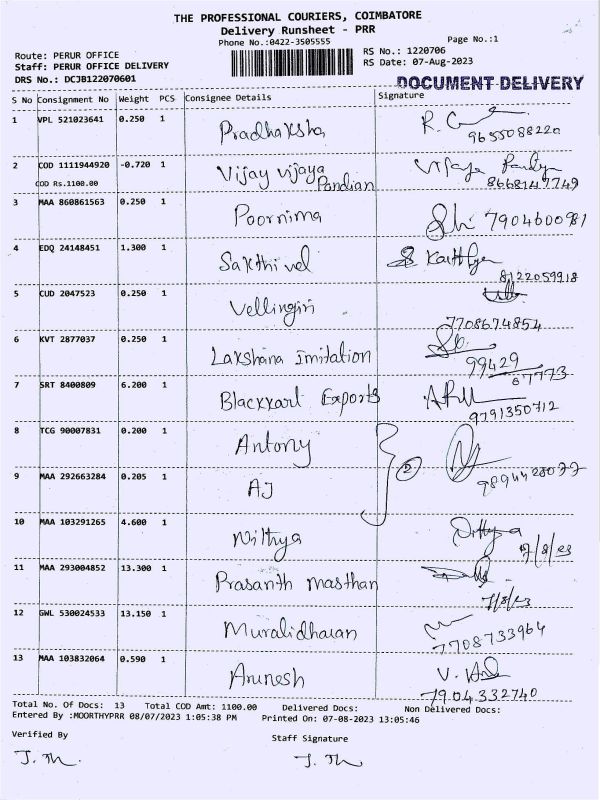 THE PROFESSIONAL COURIERS, COIMBATORE
Delivery Runsheet - PRR
Phone No.:0422-3505555
Page No.:1
Route: PERUR OFFICE
RS No.: 1220706
Staff: PERUR OFFICE DELIVERY
RS Date: 07-Aug-2023
DRS No.: DCJB122070601
DOCUMENT DELIVERY
S No Consignment No Weight PCS Consignee Details Signature
1 VPL 521023641 0.250 1 Pradhaksha R. 9655088220
2 COD 1111944920 -0.720 1 Vijay vijaya Pandian
COD Rs.1100.00 8668147749
3 MAA 860861563 0.250 1 Poornima 7904600981
4 EDQ 24148451 1.300 1 Sakthivel 8122059918
5 CUD 2047523 0.250 1 Vellingiri 7708674854
6 KVT 2877037 0.250 1 Lakshana Imitation 99429 67773
7 SRT 8400809 6.200 1 Blackkart Exports 9791350712
8 TCG 90007831 0.200 1 Antony
9 MAA 292663284 0.205 1 AJ
2
10 MAA 103291265 4.600 1 Nithya 7/8/23
11 MAA 293004852 13.300 1 Prasanth masthan 7/8/23
12 GWL 530024533 13.150 1 Muralidharan 7708733964
13 MAA 103832064 0.590 1 Arunesh V. 7904332740
Total No. Of Docs: 13 Total COD Amt: 1100.00 Delivered Docs: Non Delivered Docs:
Entered By :MOORTHYPRR 08/07/2023 1:05:38 PM Printed On: 07-08-2023 13:05:46
Verified By Staff Signature